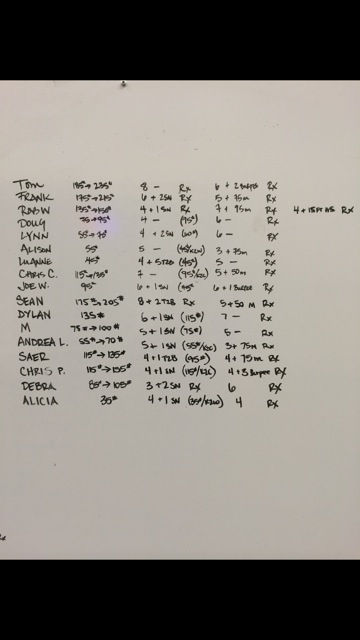 TOM 185#→235# 8 - Rx 6 + 2 Burpees Rx
FRANK 175#→215# 6 + 2SN Rx 5 + 75m Rx
ROB W 135#→150# 4 + 1SN Rx 7 + 95m Rx 4 + 15FT HS Rx
DOUG 75#→95# 4 - (95#) 6 - Rx
LYNN 55#→75# 4 + 2SN (60#) 6 - Rx
ALISON 55# 5 - 3 + 75m Rx
LUANNE 45# 4 + 5T2B (45#) 5 - Rx
CHRIS C. 115#→135# 7 - 5 + 50m Rx
JOE W. 95# 6 + 1SN (95# 6 + 1 Burpee Rx
SEAN 175#→205# 8 + 2T2B Rx 5 + 50 M Rx
DYLAN 135# 6 + 1SN (115#) 7 - Rx
M 75#→100# 5 + 1SN (75#) 5 - Rx
ANDREA L. 55#→70# 5 + 1SN 3 + 75m Rx
SAER 115#→135# 4 + 1T2B (95#) 4 + 75m Rx
CHRIS P. 115#→155# 4 + 1SN 4 + 3 Burpee Rx
DEBRA 85#→105# 3 + 2SN Rx 6 Rx
ALICIA 35# 4 + 1SN 4 Rx
Rx